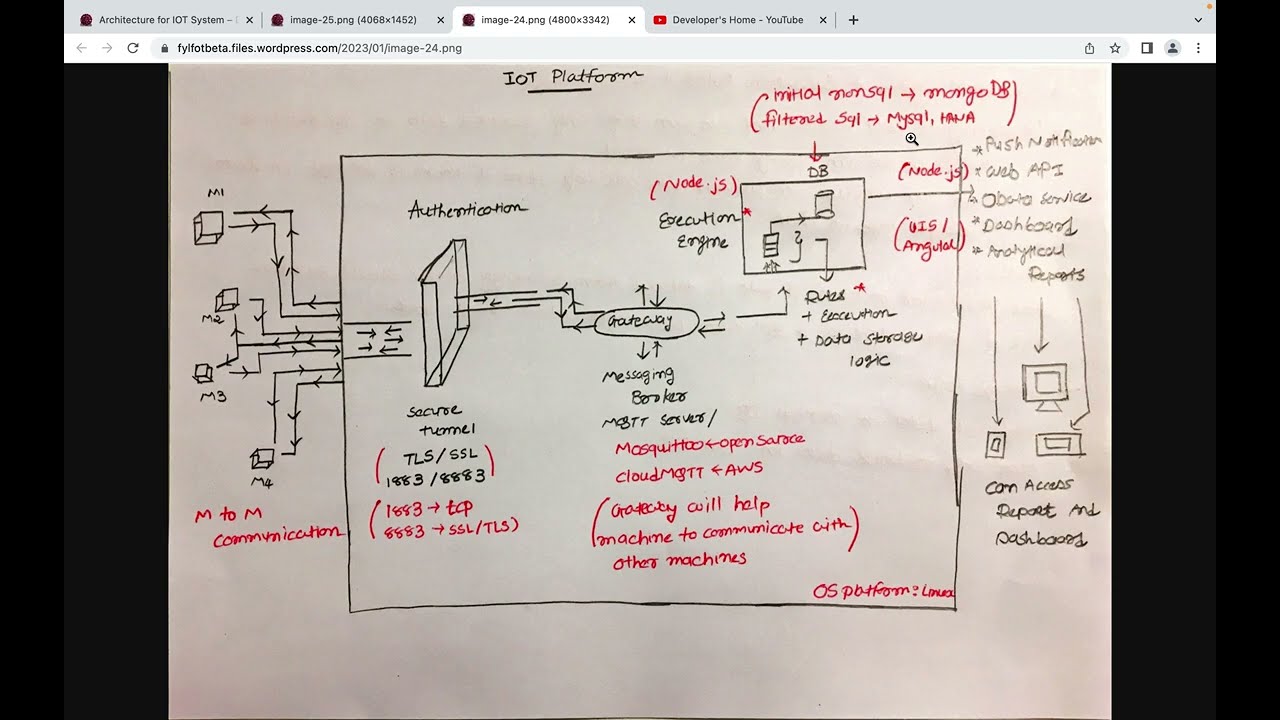 Architecture for IOT System – D
image-25.png (4068×1452)
image-24.png (4800×3342)
Developer's Home - YouTube
fylfotbeta.files.wordpress.com/2023/01/image-24.png
IOT Platform
(initial nonsql → mongoDB)
(filtered sql → Mysql, HANA)
DB
(Node.js)
Execution *
Engine
(Node.js)
(UI5/
Angular)
* Push Notification
* Web API
* Odata Service
* Dashboard
* Analytical
Reports
M1
M2
M3
M4
M to M
communication
Authentication
secure
tunnel
(TLS/SSL
1883/8883)
(1883 → tcp
8883 → SSL/TLS)
Gateway
Messaging
Broker
MQTT Server/
Mosquittoo ← open Saroce
CloudMQTT ← AWS
(Gateway will help
machine to communicate with
other machines)
Rules *
+ Execution
+ Data storage
logic
OS platform: Linux
Can Access
Report And
Dashboard